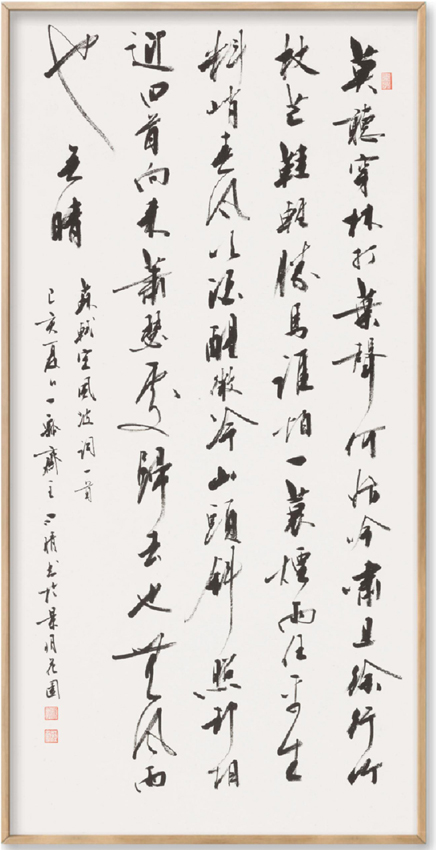 莫聽穿林打葉聲何妨吟嘯且徐行竹
杖芒鞋輕勝馬誰怕一蓑煙雨任平生
料峭春風吹酒醒微冷山頭斜照却相
迎回首向來蕭瑟處歸去也無風雨
也无晴
蘇軾定風波詞一首
己亥夏日一瓢齋主書於花園